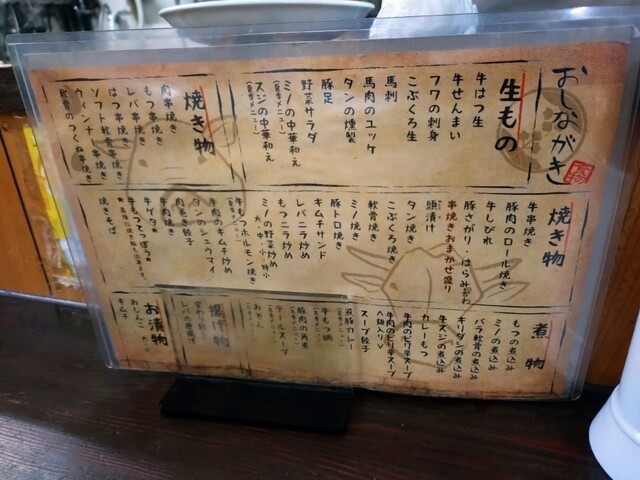 おしながき
生もの
牛はつ生
牛せんまい
フワの刺身
こぶくろ生
馬刺
馬肉のユッケ
タンの燻製
豚足
野菜サラダ
ミノの中華和え
スジの中華和え
焼き物
肉串焼き
もつ串焼き
レバ串焼き
はつ串焼き
ソフト軟骨串焼き
ウィンナー串焼き
軟骨のつくね串焼き
焼き物
牛串焼き
豚肉のロール焼き
牛しびれ
豚さがり・はらみ
串焼きおまかせ盛り
頭漬け
タン焼き
こぶくろ焼き
軟骨焼き
ミノ焼き
豚トロ焼き
キムチサンド
レバニラ炒め
もつニラ炒め
ミノの野菜炒め
大・中・小・特小
牛もつホルモン焼き
牛肉のキムチ炒め
タンのシュウマイ
肉巻き餃子
牛ゲタ
牛もつてっぽう
焼きそば
煮物
もつの煮込み
ミノの煮込み
バラ軟骨の煮込み
ギリダンの煮込み
牛スジの煮込み
カレーもつ
牛肉のピリ辛スープ
牛肉のピリ辛スープ
スープ餃子
煮豚カレー
牛もつ鍋
豚肉の角煮
テールスープ
おでん
揚げ物
変わり餃子
レバの唐揚げ
お漬物
おしんこ
キムチ